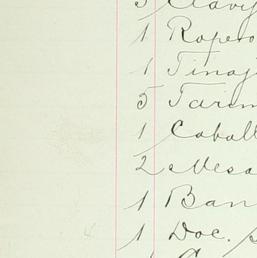 1 Ropero
1 Tinaj
5 Tarim
1 Caball
2 Mesa
1 Ban
1 Doc.